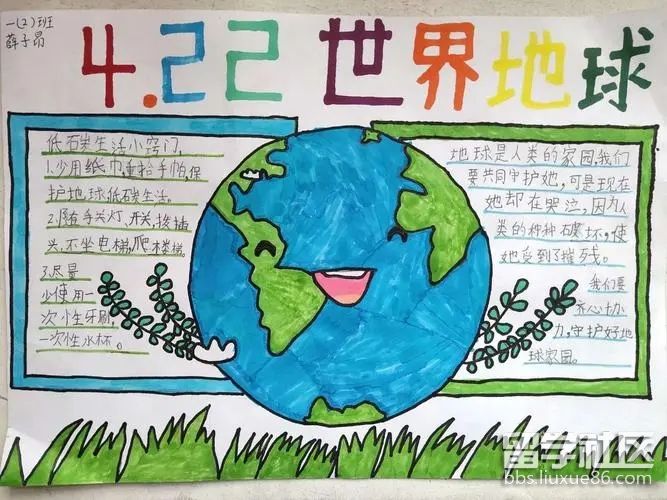 一(2)班
薛子昂
4.22 世界地球
低碳生活小窍门,
1.少用纸巾,重拾手帕,保
护地球低碳生活。
2.随手关灯、开关,拨插
头,不坐电梯,爬楼梯。
3.尽量
少使用一
次性牙刷,
一次性水杯。
地球是人类的家园,我们
要共同守护她,可是现在
她却在哭泣,因为人
类的种种破坏,使
她受到了摧残。
我们要
齐心协办
力,守护好地
球家园。
留学社区
bbs.liuxue86.com